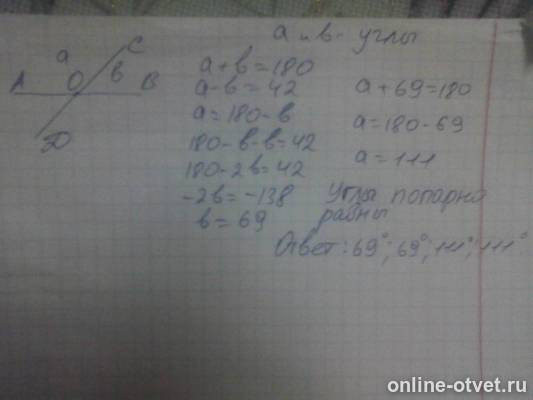 a и в - углы
C
a
O
в
A
B
D
a+в=180
a-в=42
a=180-в
180-в-в=42
180-2в=42
-2в=-138
в=69
a+69=180
a=180-69
a=111
Углы попарно
равны
Ответ: 69°; 69°; 111°; 111°
online-otvet.ru